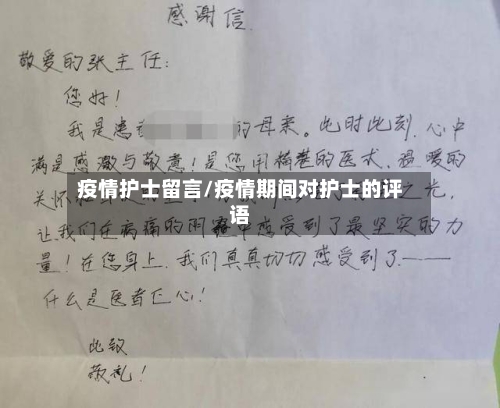 感谢信
敬爱的张主任：
您好！
我是患 的母亲。此时此刻，心中
满是感激与敬意！是您用精湛的医术、温暖的
关怀 之光，
疫情护士留言/疫情期间对护士的评
语
让我们在病痛的阴霾中感受到了最坚实的力
量！在您身上，我们真真切切感受到了——
什么是医者仁心！
此致
敬礼！